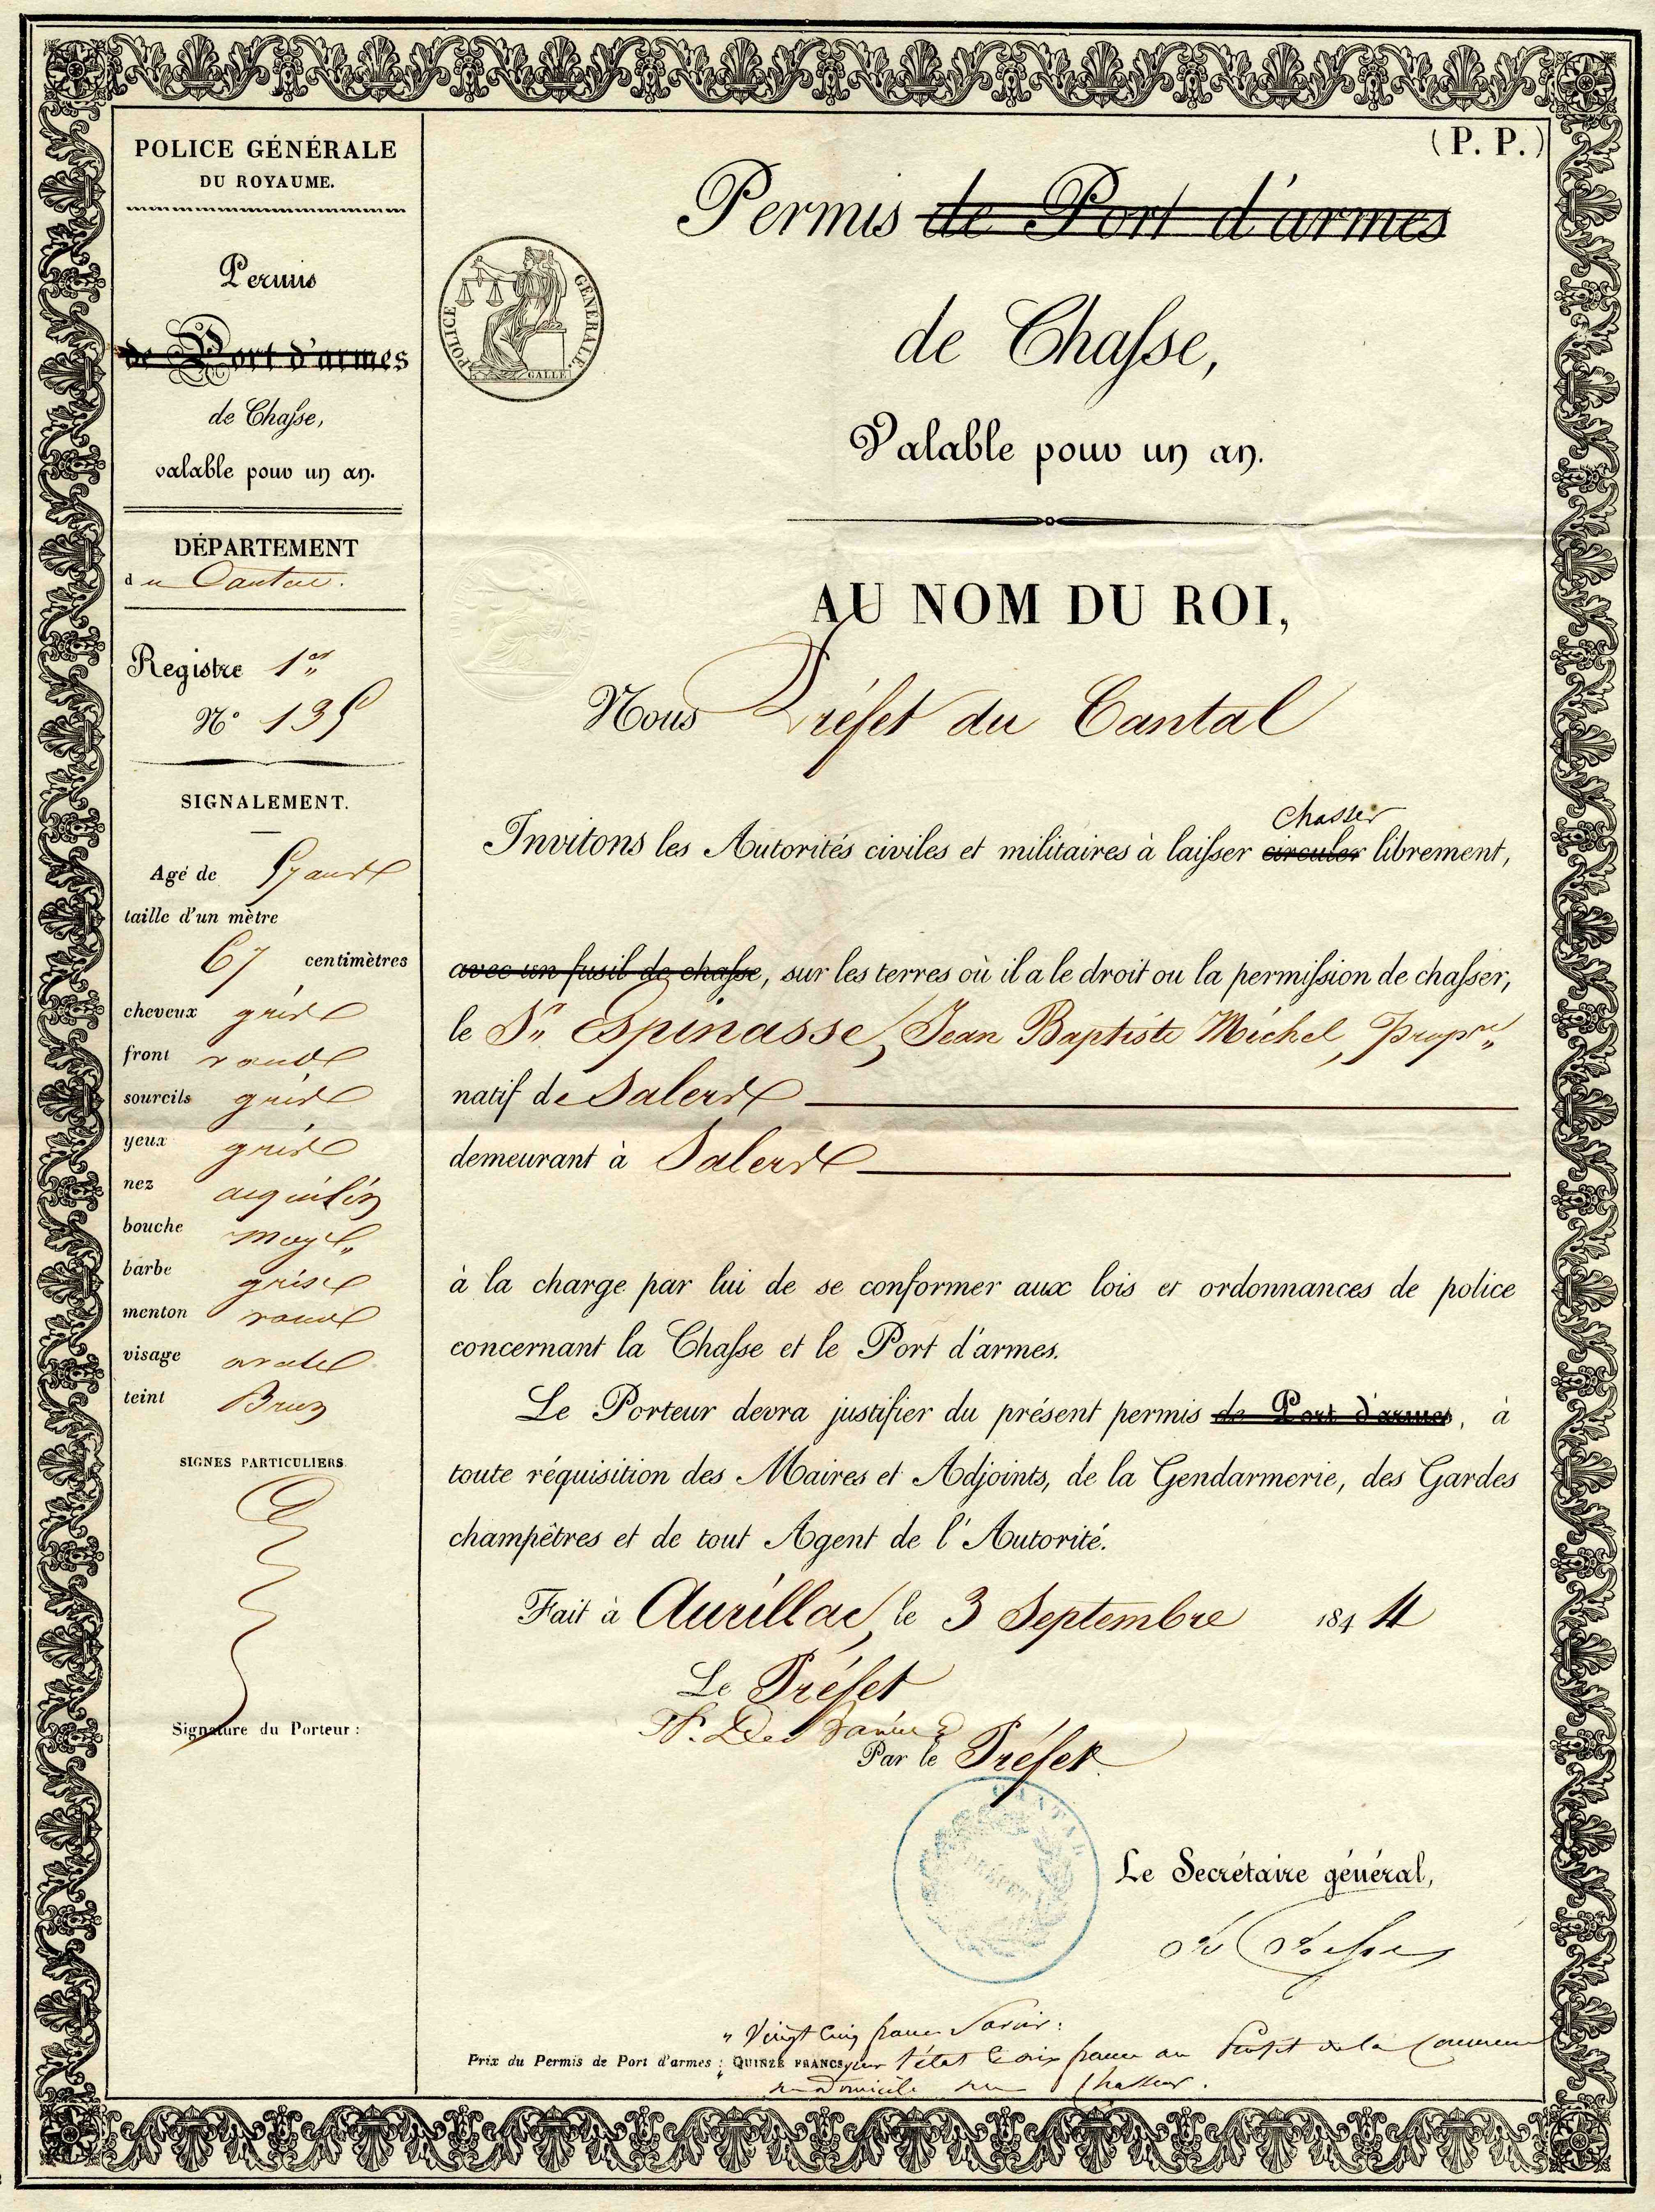 POLICE GÉNÉRALE
DU ROYAUME.
Permis
de Port d'armes
de Chaſse,
valable pour un an.
DÉPARTEMENT
du Cantal.
Registre 1er
N° 135
SIGNALEMENT.
Agé de 57 ans
taille d'un mètre
67 centimètres
cheveux gris
front rond
sourcils gris
yeux gris
nez aquilin
bouche moy.
barbe grise
menton rond
visage ovale
teint Brun
SIGNES PARTICULIERS.
Signature du Porteur :
(P. P.)
Permis de Port d'armes
de Chaſse,
Valable pour un an.
POLICE GÉNÉRALE.
GALLE
AU NOM DU ROI,
Nous Préfet du Cantal
chasser
Invitons les Autorités civiles et militaires à laiſser circuler librement,
avec un fusil de chaſse, sur les terres où il a le droit ou la permiſsion de chaſser,
le Sr. Espinasse, Jean Baptiste Michel, Propre.
natif de Salers
demeurant à Salers
à la charge par lui de se conformer aux lois et ordonnances de police
concernant la Chaſse et le Port d'armes.
Le Porteur devra justifier du présent permis de Port d'armes, à
toute réquisition des Maires et Adjoints, de la Gendarmerie, des Gardes
champêtres et de tout Agent de l'Autorité.
Fait à Aurillac, le 3 Septembre 1844
Le Préfet
Par le Préfet
CANTAL
PRÉFET
Le Secrétaire général,
Vingt Cinq francs Savoir :
Prix du Permis de Port d'armes : QUINZE FRANCS pour l'état & dix francs au Profit de la Commune
du Domicile du Chasseur.